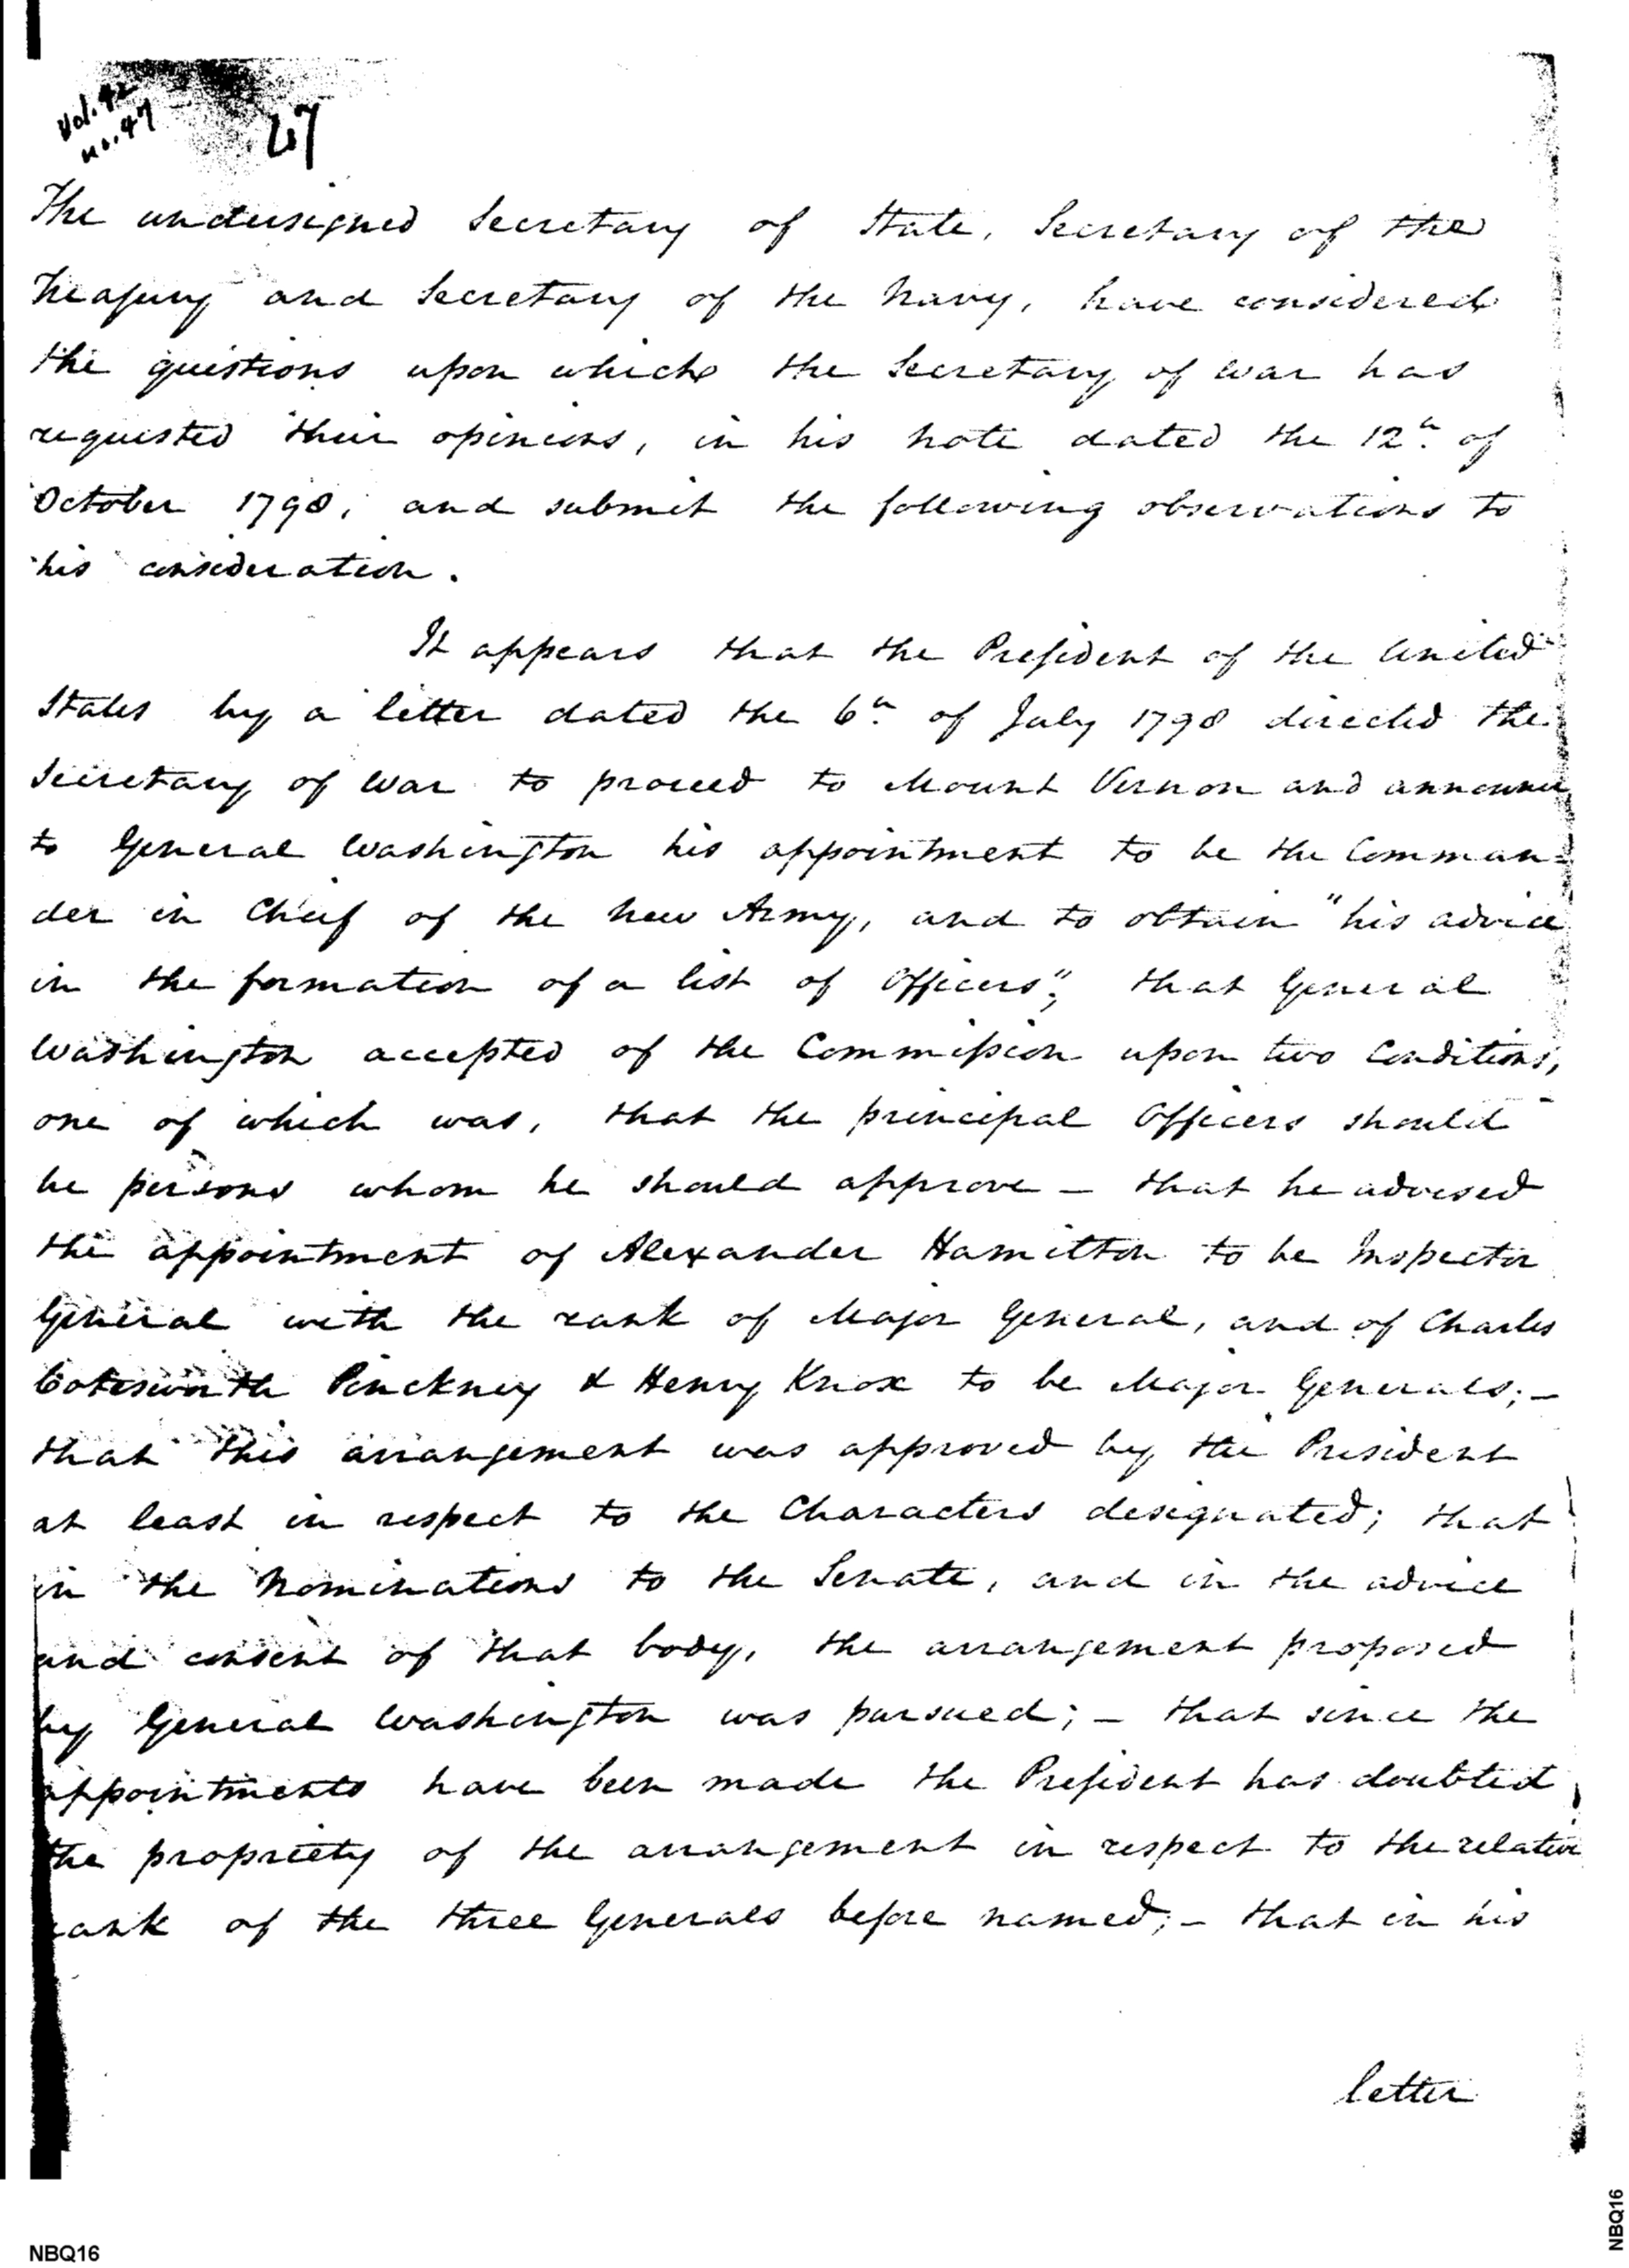 Vol. 92
no. 47
47
The undersigned Secretary of State, Secretary of the
Treasury and Secretary of the Navy, have considered
the questions upon which the Secretary of War has
requested their opinions, in his note dated the 12th. of
October 1798, and submit the following observations to
his consideration.
It appears that the President of the United
States by a letter dated the 6th. of July 1798 directed the
Secretary of War to proceed to Mount Vernon and announce
to General Washington his appointment to be the Comman=
der in Chief of the new Army, and to obtain "his advice
in the formation of a list of Officers"; that General
Washington accepted of the Commission upon two Conditions,
one of which was, that the principal Officers should
be persons whom he should approve – that he advised
the appointment of Alexander Hamilton to be Inspector
General with the rank of Major General, and of Charles
Cotesworth Pinckney & Henry Knox to be Major Generals; –
that this arrangement was approved by the President
at least in respect to the Characters designated; that
in the Nominations to the Senate, and in the advice
and consent of that body, the arrangement proposed
by General Washington was pursued; – that since the
appointments have been made the President has doubted
the propriety of the arrangement in respect to the relative
rank of the three Generals before named; – that in his
letter
NBQ16
NBQ16